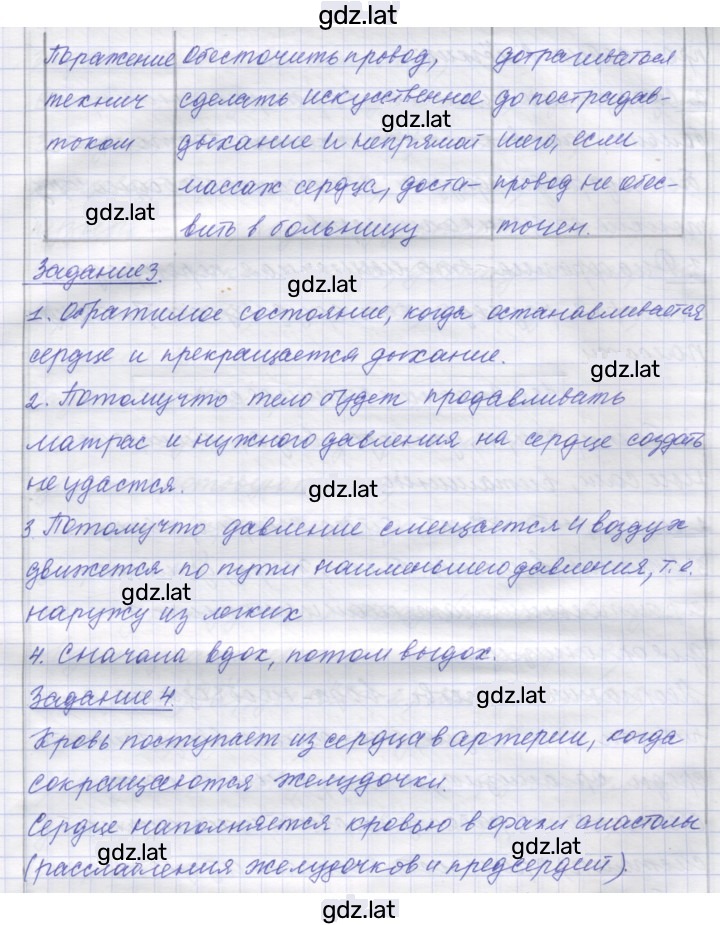 gdz.lat
Поражение Обесточить провод, дотрагиваться
технич сделать искусственное до пострадав-
gdz.lat
током дыхание и непрямой шего, если
массаж сердца, доста- провод не обес-
gdz.lat
вить в больницу точен.
Задание 3.
gdz.lat
1. Обратимое состояние, когда останавливается
сердце и прекращается дыхание.
gdz.lat
2. Потомучто тело будет продавливать
матрас и нужного давления на сердце создать
не удастся.
gdz.lat
3 Потомучто давление смещается и воздух
движется по пути наименьшего давления, т.е.
gdz.lat
наружу из легких
4. Сначала вдох, потом выдох.
Задание 4
gdz.lat
Кровь поступает из сердца в артерии, когда
сокращаются желудочки.
Сердце наполняется кровью в фазу диастолы
gdz.lat
gdz.lat
(расслабления желудочков и предсердий).
gdz.lat